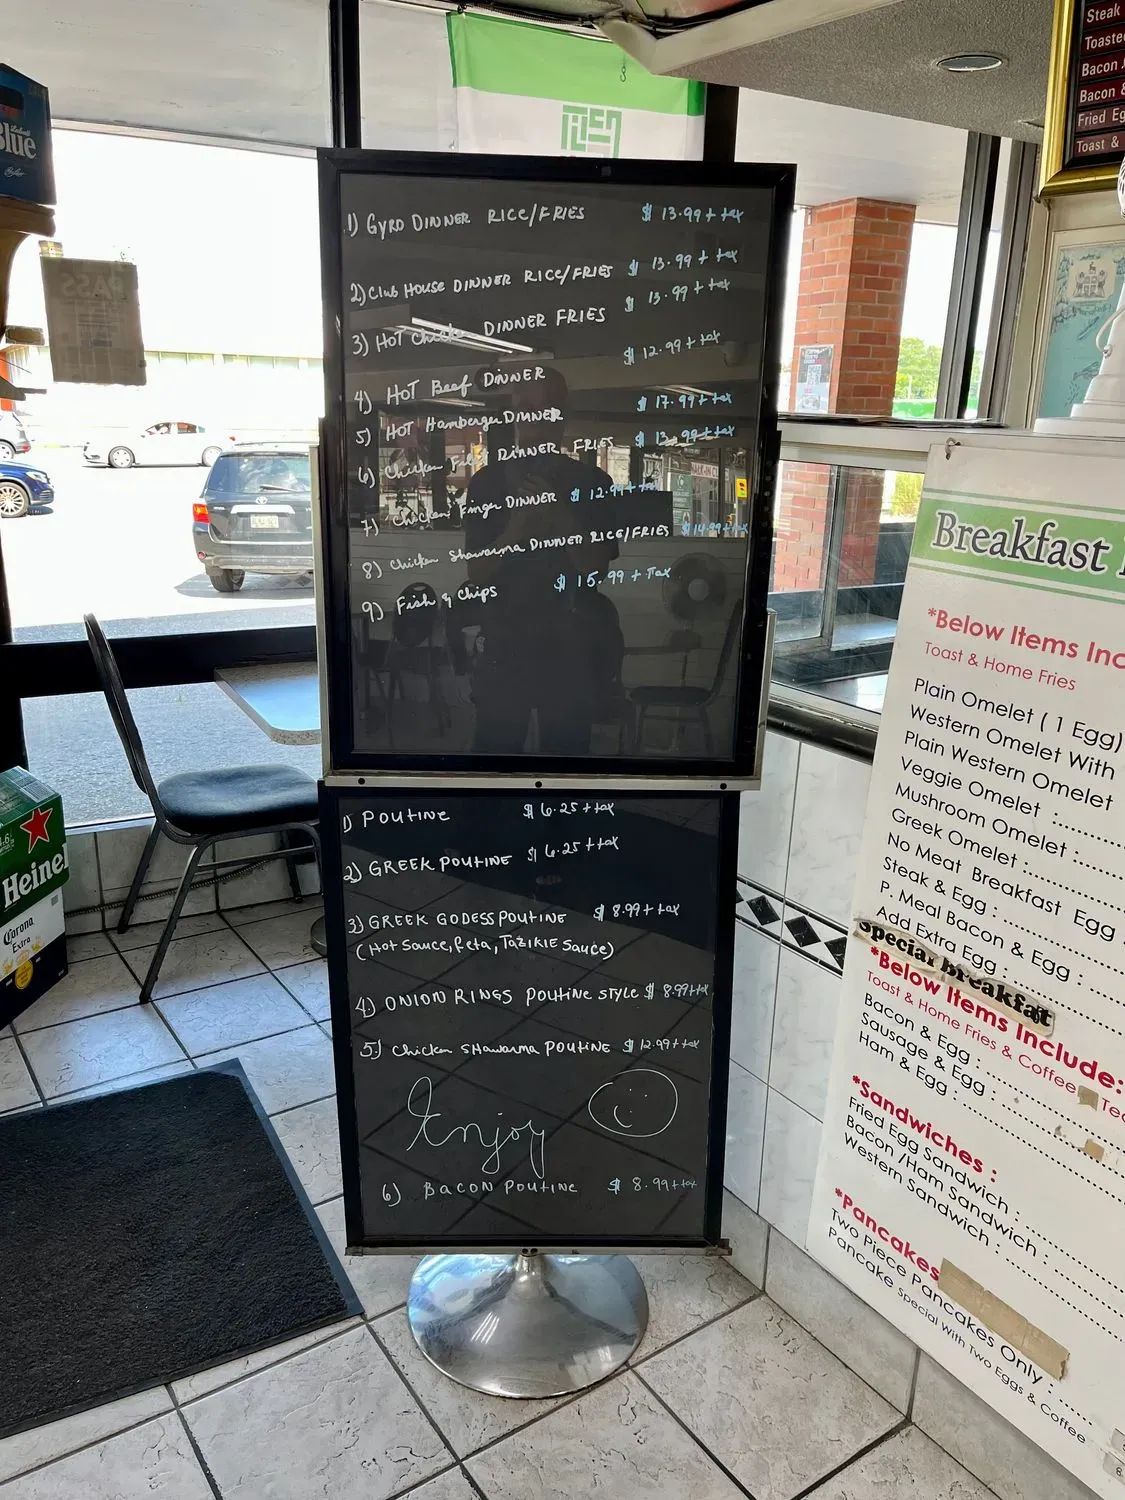 1) GYRO DINNER RICE/FRIES $ 13.99 + tax
2) Club HOUSE DINNER RICE/FRIES $ 13.99 + tax
3) HOT Chicken DINNER FRIES $ 13.99 + tax
4) HOT Beef DINNER $ 12.99 + tax
5) HOT Hamberger DINNER $ 17.99 + tax
6) Chicken DINNER FRIES $ 13.99 + tax
7) Chicken Finger DINNER $ 12.99 + tax
8) Chicken Shawarma DINNER RICE/FRIES $ 14.99 + tax
9) Fish & Chips $ 15.99 + Tax
1) POUTINE $ 6.25 + tax
2) GREEK POUTINE $ 6.25 + tax
3) GREEK GODESS POUTINE $ 8.99 + tax
(Hot Sauce, Feta, TAZIKIE Sauce)
4.) ONION RINGS POUTINE STYLE $ 8.99 + tax
5.) Chicken SHAWARMA POUTINE $ 12.99 + tax
Enjoy
6) BACON POUTINE $ 8.99 + tax
Breakfast
*Below Items Inc
Toast & Home Fries
Plain Omelet ( 1 Egg)
Western Omelet With
Plain Western Omelet
Veggie Omelet :
Mushroom Omelet :
Greek Omelet :
No Meat Breakfast Egg
Steak & Egg :
P. Meal Bacon & Egg :
Add Extra Egg :
Special Breakfat
*Below Items Include:
Toast & Home Fries & Coffee Tea
Bacon & Egg :
Sausage & Egg :
Ham & Egg :
*Sandwiches :
Fried Egg Sandwich :
Bacon /Ham Sandwich :
Western Sandwich :
*Pancakes
Two Piece Pancakes Only :
Pancake Special With Two Eggs & Coffee
Steak
Toasted
Bacon
Bacon &
Fried Eg
Toast &
Labatt
Blue
PASS
Heine
Corona
Extra